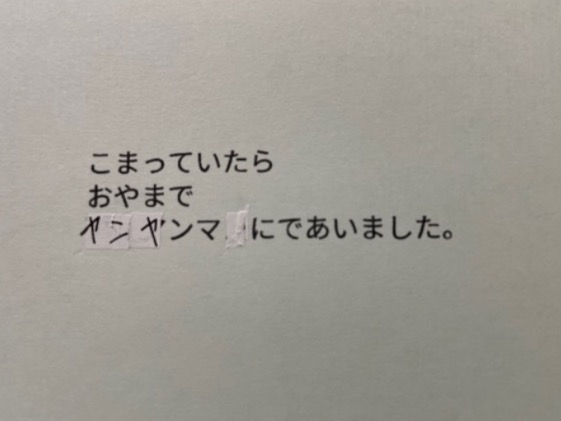 こまっていたら
おやまで
ヤンヤンマにであいました。